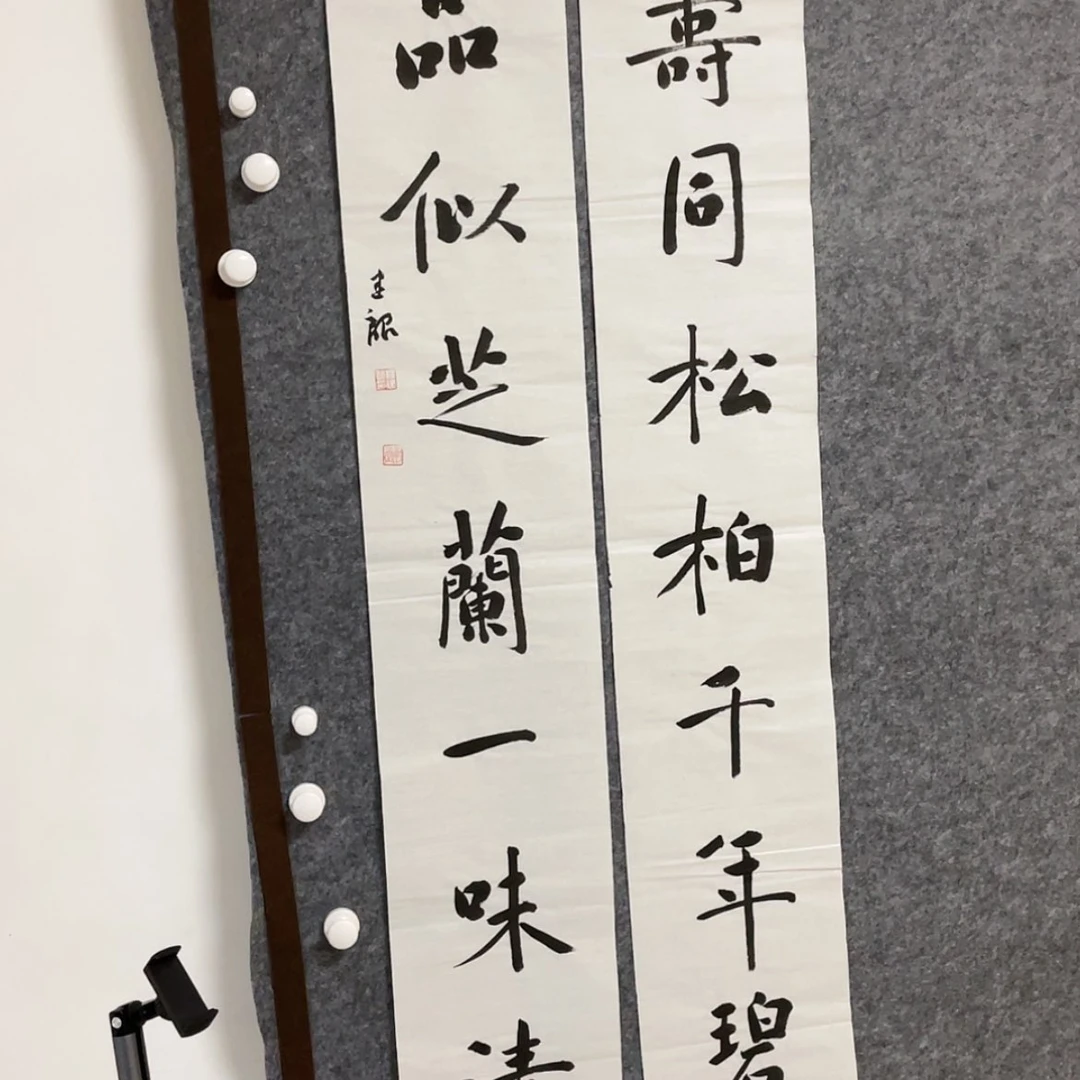 壽同松柏千年碧
品似芝蘭一味清